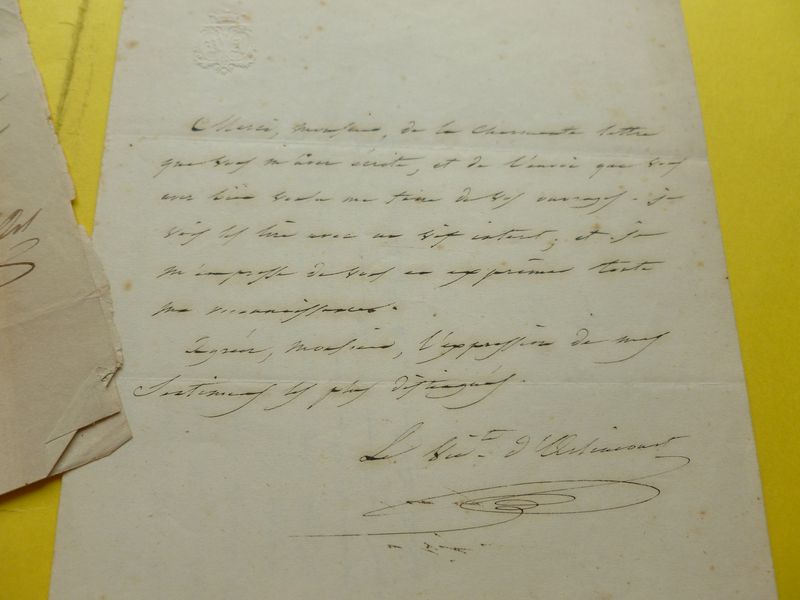 Merci, monsieur, de la charmante lettre
que vous m'avez écrite, et de l'envoi que vous
avez bien voulu me faire de vos ouvrages. je
vais les lire avec un vif intérêt; et je
m'empresse de vous en exprimer toute
ma reconnaissance.
Agréez, monsieur, l'expression de mes
sentimens les plus distingués.
Le Vic.te d'Arlincourt